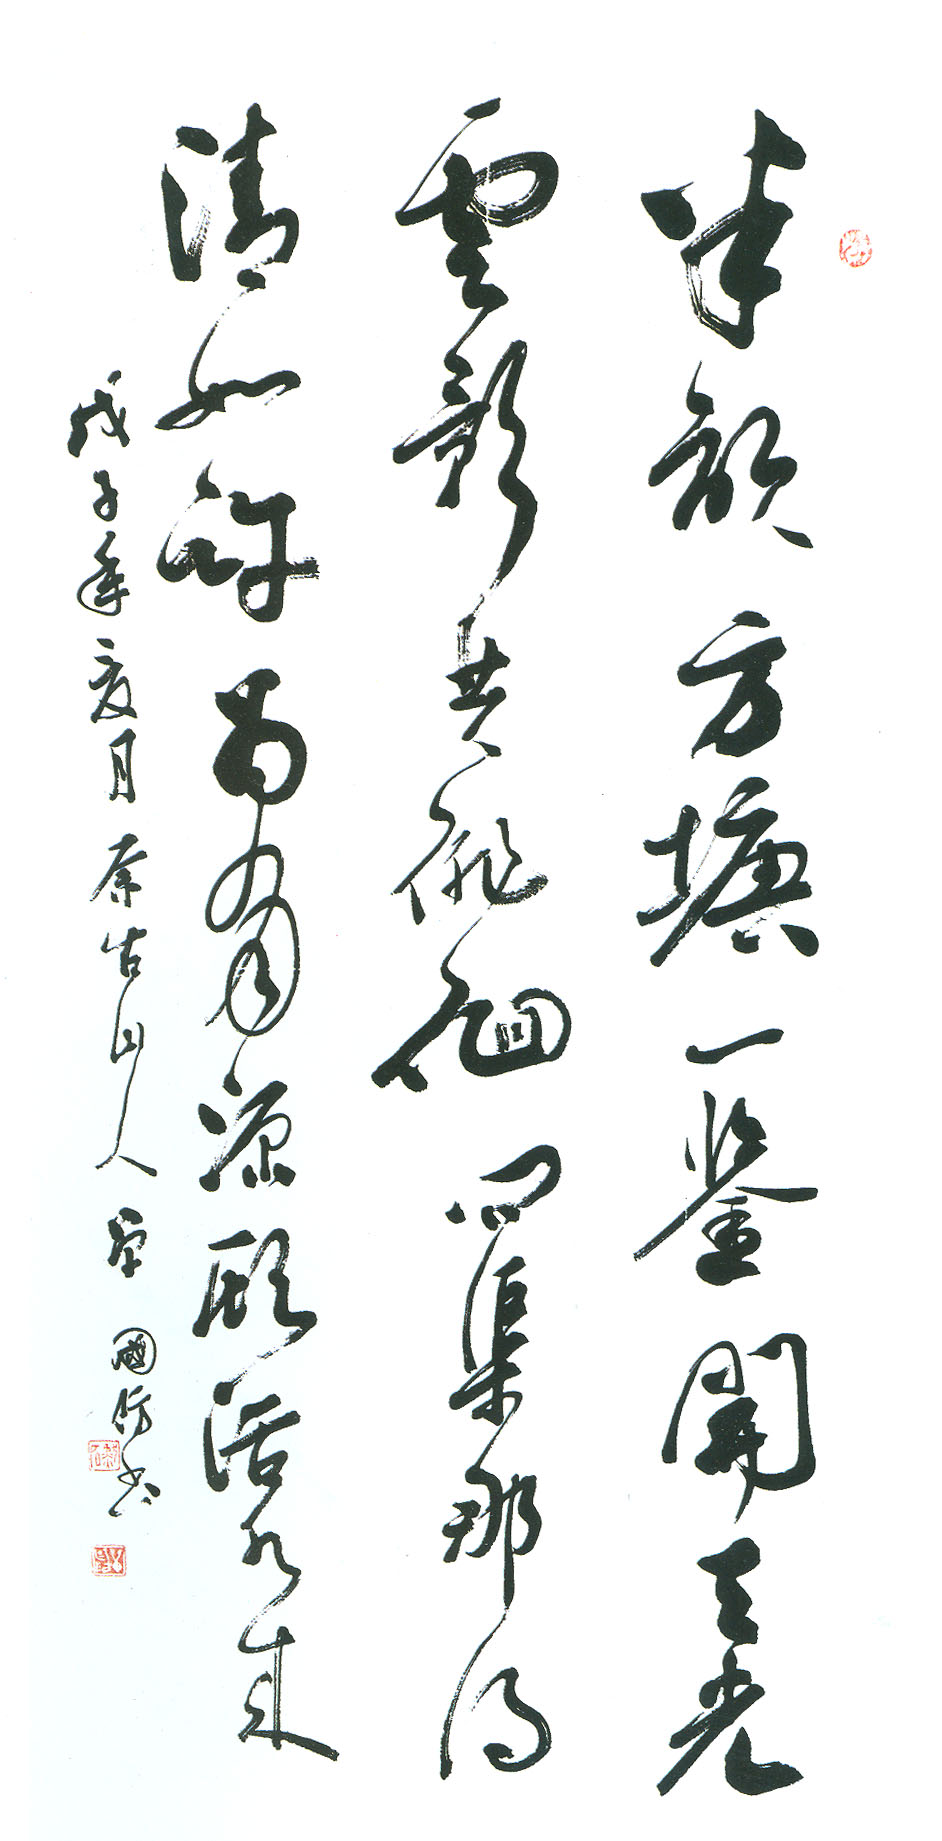 半畝方塘一鑒開天光
雲影共徘徊問渠那得
清如許為有源頭活水來
戊子年夏月古山人國書